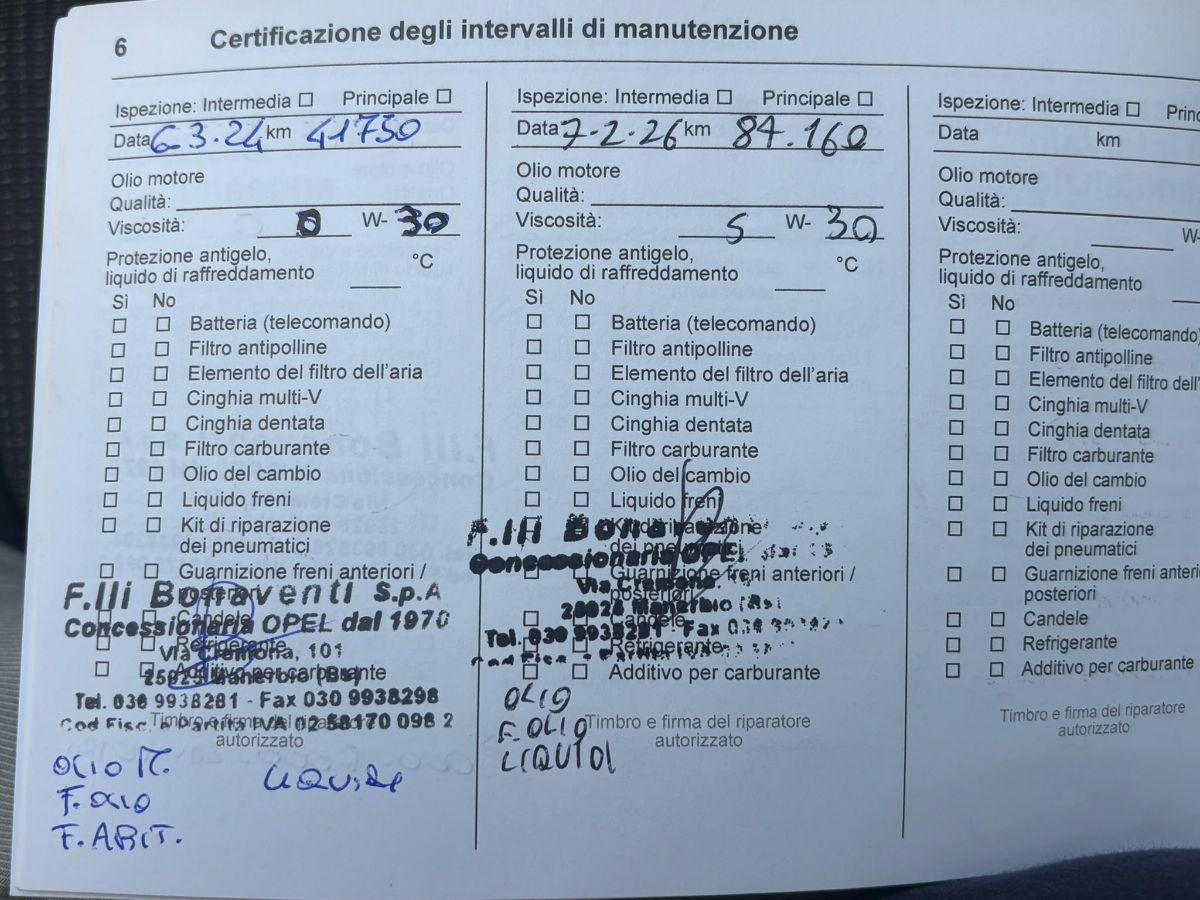 6 Certificazione degli intervalli di manutenzione
Ispezione: Intermedia Principale
Data 6.3.24 km 41750
Olio motore
Qualità:
Viscosità: 0 W- 30
Protezione antigelo,
liquido di raffreddamento °C
Sì No
Batteria (telecomando)
Filtro antipolline
Elemento del filtro dell'aria
Cinghia multi-V
Cinghia dentata
Filtro carburante
Olio del cambio
Liquido freni
Kit di riparazione
dei pneumatici
Guarnizione freni anteriori /
posteriori
Candele
Refrigerante
Additivo per carburante
F.lli Bonaventi S.p.A
Concessionaria OPEL dal 1970
Via Cremona, 101
25025 Manerbio (Bs)
Tel. 030 9938281 - Fax 030 9938298
Cod Fisc. e Partita IVA 02 58170 098 2
Timbro e firma del riparatore
autorizzato
OLIO M.
F. OLIO
F. ABIT.
LIQUIDI
Ispezione: Intermedia Principale
Data 7-2-26 km 84.160
Olio motore
Qualità:
Viscosità: 5 W- 30
Protezione antigelo,
liquido di raffreddamento °C
Sì No
Batteria (telecomando)
Filtro antipolline
Elemento del filtro dell'aria
Cinghia multi-V
Cinghia dentata
Filtro carburante
Olio del cambio
Liquido freni
Kit di riparazione
dei pneumatici
Guarnizione freni anteriori /
Candele
Refrigerante
Additivo per carburante
F.lli
Concessionaria OPEL
Via Cremona
Manerbio (Bs)
Tel. 030 9938281 - Fax 030
Timbro e firma del riparatore
autorizzato
OLIO
F. OLIO
LIQUIDI
Ispezione: Intermedia Princ
Data km
Olio motore
Qualità:
Viscosità: W-
Protezione antigelo,
liquido di raffreddamento
Sì No
Batteria (telecomando)
Filtro antipolline
Elemento del filtro dell'
Cinghia multi-V
Cinghia dentata
Filtro carburante
Olio del cambio
Liquido freni
Kit di riparazione
dei pneumatici
Guarnizione freni anteriori
posteriori
Candele
Refrigerante
Additivo per carburante
Timbro e firma del riparatore
autorizzato